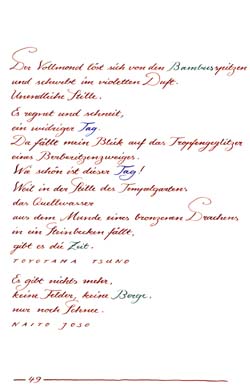 Der Vollmond löst sich von den Bambusspitzen
und schwebt im violetten Duft.
Unendliche Stille.
Es regnet und schneit,
ein widriger Tag.
Da fällt mein Blick auf das Tropfengeglitzer
eines Berberitzenzweiges.
Wie schön ist dieser Tag!
Weil in der Stille des Tempelgartens
das Quellwasser
aus dem Munde eines bronzenen Drachens
in ein Steinbecken fällt,
gibt es die Zeit.
TOYOTAMA TSUNO
Es gibt nichts mehr,
keine Felder, keine Berge,
nur noch Schnee.
NAITO JOSO
49